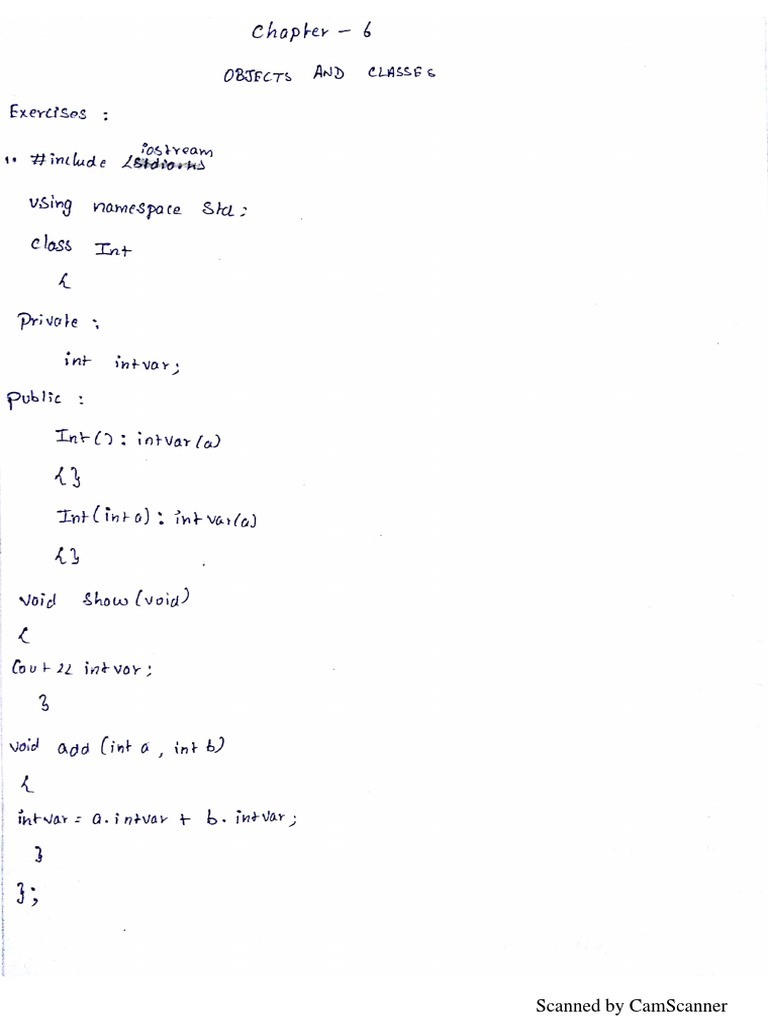 Chapter - 6
OBJECTS AND CLASSES
Exercises :
1. #include <iostream
using namespace Std;
class Int
{
Private :
int intvar;
Public :
Int() : intvar(a)
{}
Int(int a) : intvar(a)
{}
void show(void)
{
Cout << intvar;
}
void add (int a, int b)
{
intvar = a.intvar + b.intvar;
}
};
Scanned by CamScanner